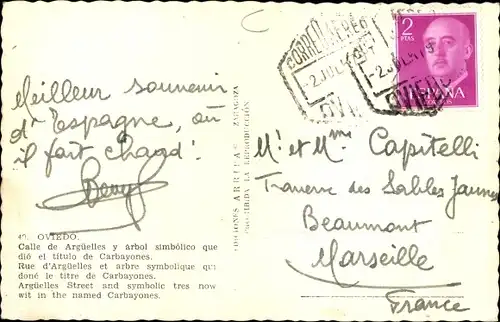 Meilleur souvenir
d'Espagne, où
il fait chaud!
49. OVIEDO.
Calle de Argüelles y árbol simbólico que
dió el título de Carbayones.
Rue d'Argüelles et arbre symbolique qui
doné le titre de Carbayones.
Argüelles Street and symbolic tres now
wit in the named Carbayones.
EDICIONES ARRIBAS ZARAGOZA
PROHIBIDA LA REPRODUCCIÓN
CORREO AEREO
2 JUL
OVIEDO
2 PTAS
ESPAÑA
CORREOS
Mr et Mme Capitelli
Traverse des Sables Jaunes
Beaumont
Marseille
France